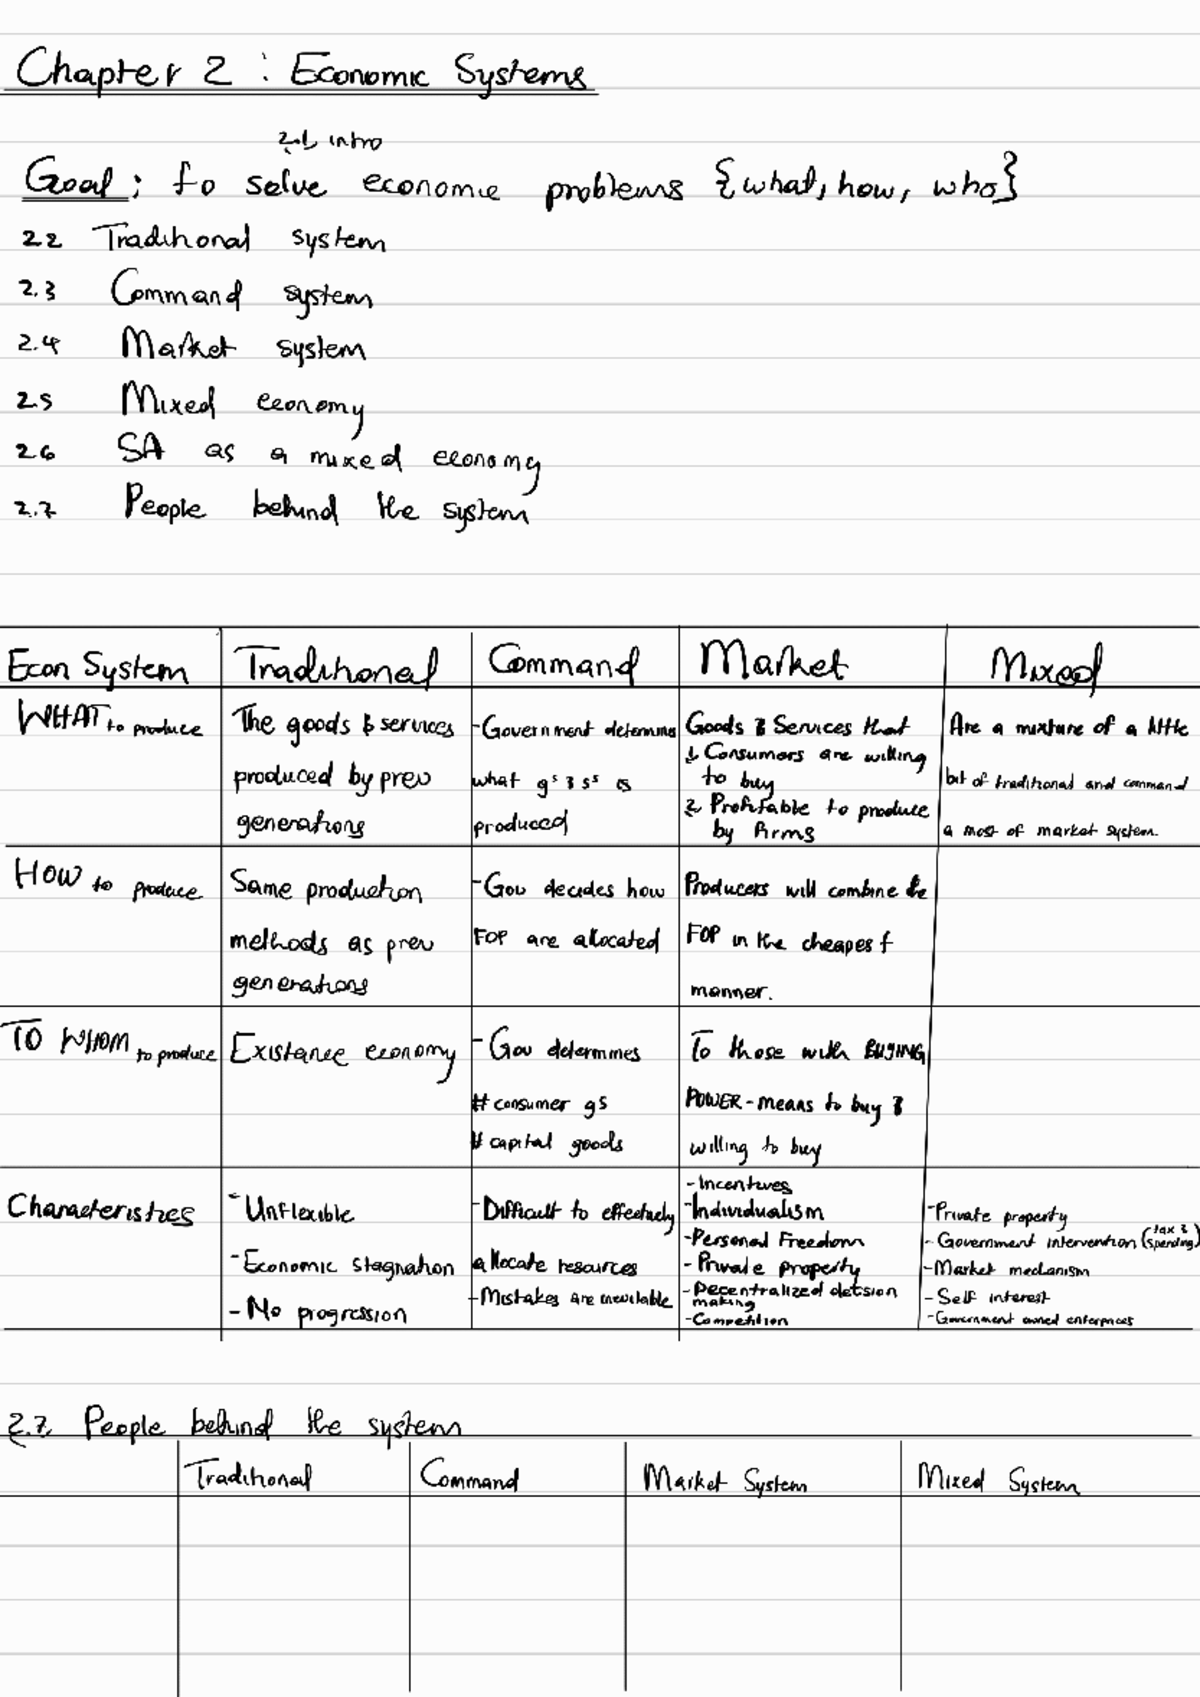 Chapter 2 : Economic Systems
2.1 intro
Goal: to solve economic problems {what, how, who}
2.2 Traditional system
2.3 Command system
2.4 Market system
2.5 Mixed economy
2.6 SA as a mixed economy
2.7 People behind the system
Econ System Traditional Command Market Mixed
WHAT to produce
The goods & services
produced by prev
generations
- Government determines
what gs & ss is
produced
Goods & Services that
1. Consumers are willing
to buy
2. Profitable to produce
by firms
Are a mixture of a little
bit of traditional and command
a most of market system.
HOW to produce
Same production
methods as prev
generations
- Gov decides how
FOP are allocated
Producers will combine the
FOP in the cheapest
manner.
TO WHOM to produce
Existance economy
- Gov determines
# consumer gs
# capital goods
To those with BUYING
POWER - means to buy &
willing to buy
Characteristics
- Unflexible
- Economic stagnation
- No progression
- Difficult to effectively
allocate resources
- Mistakes are inevitable
- Incentives
- Individualism
- Personal Freedom
- Private property
- Decentralized decision
making
- Competition
- Private property
- Government intervention (tax & spending)
- Market mechanism
- Self interest
- Government owned enterprises
2.7. People behind the system
Traditional Command Market System Mixed System